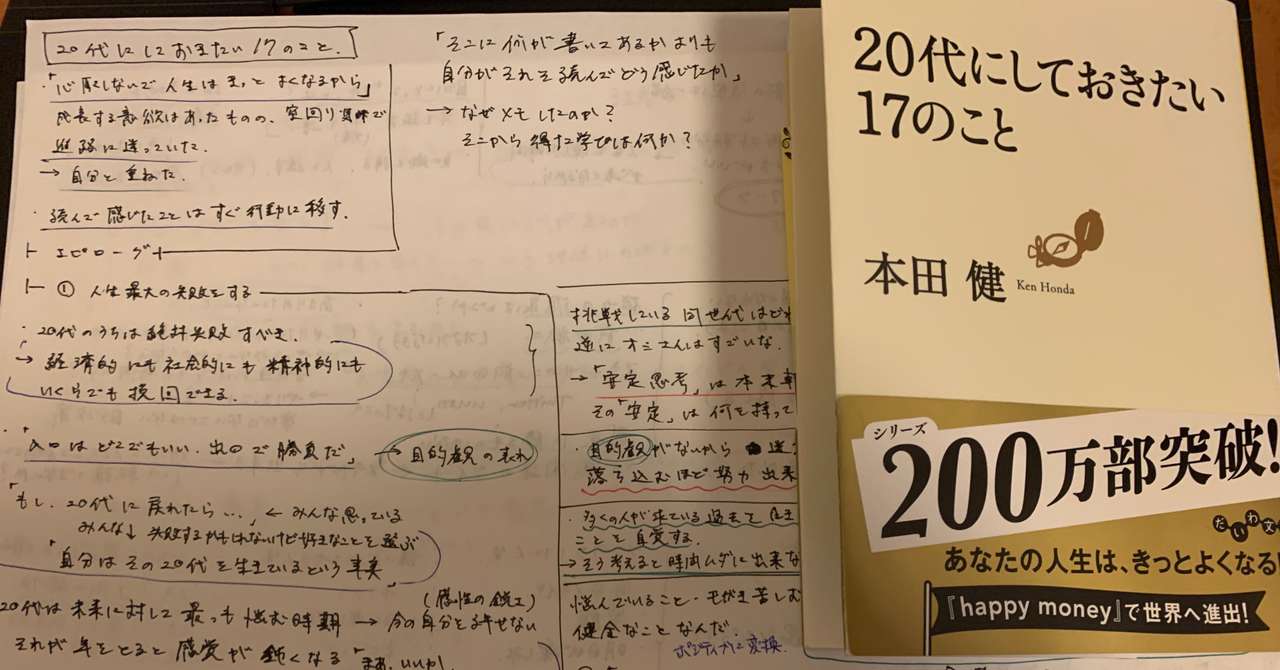 20代にしておきたい17のこと.
「心配しないで人生はきっとよくなるから」
成長する意欲はあったものの、空回り気味で
進路に迷っていた.
→ 自分と重ねた.
・読んで感じたことはすぐ行動に移す.
エピローグ
① 人生最大の失敗をする
・20代のうちは絶対失敗すべき.
→ 経済的にも社会的にも精神的にも
いくらでも挽回できる.
・「入口はどこでもいい.出口で勝負だ」→ 目的観の表れ
「もし、20代に戻れたら…」← みんな思っている
みんな↓ 失敗するかもしれないけど好きなことを選ぶ
「自分はその20代を生きているという事実」
20代は未来に対して最も悩む時期 → 今の自分を許せない
(感性の鋭さ)
それが年をとると感覚が鈍くなる「まあ、いいか
「そこに何が書いてあるかよりも
自分がそれを読んでどう感じたか」
→ なぜメモしたのか?
そこから得た学びは何か?
挑戦している同世代は
逆にオミさんはすごいな.
→「安定思考」は本末
その「安定」は何を持って
・目的観がないから
落ち込むほど努力出来
・多くの人が来ている過去を
ことを自覚する.
→ そう考えると時間ムダに出来な
悩んでいること・もがき苦しむ
健全なことなんだ.
ポジティブに変換.
20代にしておきたい
17のこと
本田 健
Ken Honda
シリーズ
200万部突破!
だいわ文
あなたの人生は、きっとよくなる!
『happy money』で世界へ進出!